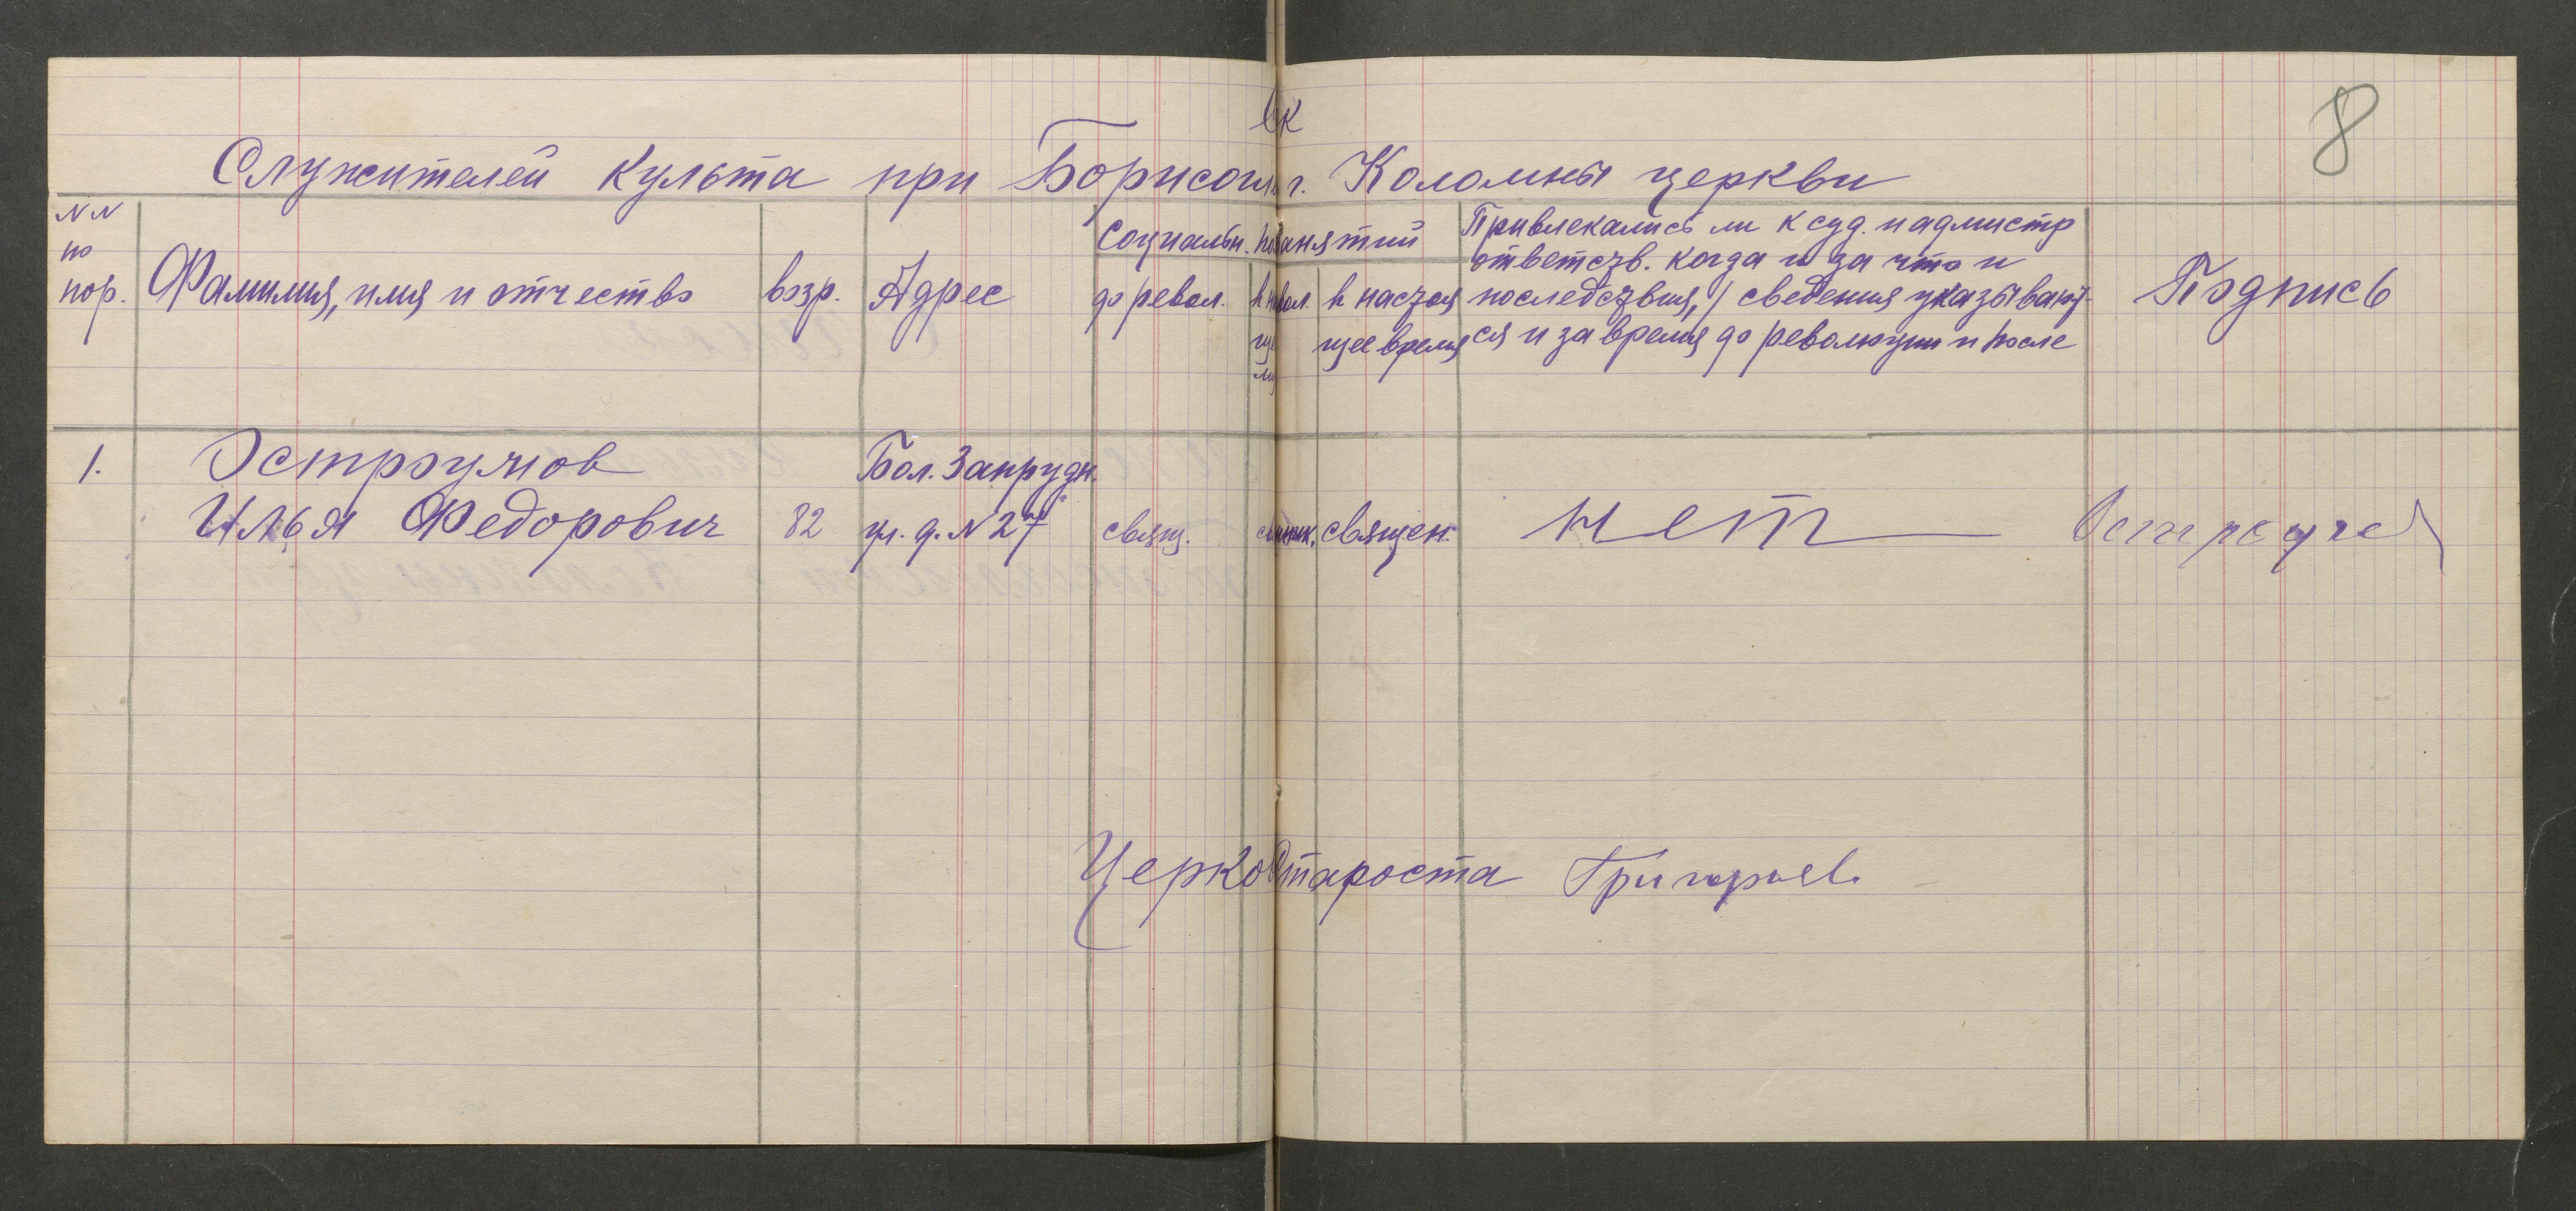 8
Служителей культа при Борисогл г. Коломны церкви
NN по пор.
Фамилия, имя и отчество
возр.
Адрес
Социальн. занятий
до револ.
в настоя
щее время
Привлекались ли к суд. и админстр
ответств. когда и за что и
последствия, / сведения указывают-
ся и за время до революции и после
Подпись
1.
Остроумов
Илья Федорович
82
Бол. Запрудн.
ул. д. N 27
свящ.
священ.
нет
Церко Староста Григорьев